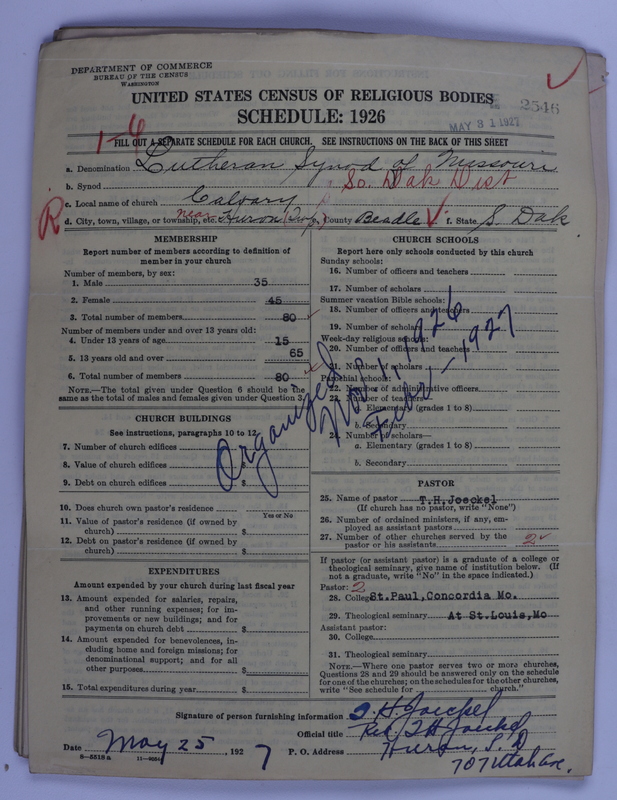 DEPARTMENT OF COMMERCE
BUREAU OF THE CENSUS
WASHINGTON
UNITED STATES CENSUS OF RELIGIOUS BODIES
SCHEDULE: 1926
2546
MAY 31 1927
1-6
FILL OUT A SEPARATE SCHEDULE FOR EACH CHURCH. SEE INSTRUCTIONS ON THE BACK OF THIS SHEET
a. Denomination Lutheran Synod of Missouri
b. Synod So. Dak Dist
c. Local name of church Calvary
R
d. City, town, village, or township, etc. near Huron (Twp.) County Beadle f. State S. Dak
MEMBERSHIP
Report number of members according to definition of
member in your church
Number of members, by sex:
1. Male 35
2. Female 45
3. Total number of members 80
Number of members under and over 13 years old:
4. Under 13 years of age 15
5. 13 years old and over 65
6. Total number of members 80
NOTE.—The total given under Question 6 should be the
same as the total of males and females given under Question 3.
CHURCH BUILDINGS
See instructions, paragraphs 10 to 12
7. Number of church edifices
8. Value of church edifices $
9. Debt on church edifices $
10. Does church own pastor's residence
Yes or No
11. Value of pastor's residence (if owned by
church) $
12. Debt on pastor's residence (if owned by
church) $
EXPENDITURES
Amount expended by your church during last fiscal year
13. Amount expended for salaries, repairs,
and other running expenses; for im-
provements or new buildings; and for
payments on church debt $
14. Amount expended for benevolences, in-
cluding home and foreign missions; for
denominational support; and for all
other purposes $
15. Total expenditures during year $
CHURCH SCHOOLS
Report here only schools conducted by this church
Sunday schools:
16. Number of officers and teachers
17. Number of scholars
Summer vacation Bible schools:
18. Number of officers and teachers
19. Number of scholars
Week-day religious schools:
20. Number of officers and teachers
21. Number of scholars
Parochial schools:
22. Number of administrative officers
23. Number of teachers—
a. Elementary (grades 1 to 8)
b. Secondary
24. Number of scholars—
a. Elementary (grades 1 to 8)
b. Secondary
Organized
1926
1927
PASTOR
25. Name of pastor T.H.Joeckel
(If church has no pastor, write "None")
26. Number of ordained ministers, if any, em-
ployed as assistant pastors
27. Number of other churches served by the
pastor or his assistants 2
If pastor (or assistant pastor) is a graduate of a college or
theological seminary, give name of institution below. (If
not a graduate, write "No" in the space indicated.)
Pastor: 2
28. College St.Paul,Concordia Mo.
29. Theological seminary At St.Louis,Mo
Assistant pastor:
30. College
31. Theological seminary
NOTE.—Where one pastor serves two or more churches,
Questions 28 and 29 should be answered only on the schedule
for one of the churches; on the schedules for the other churches,
write "See schedule for church."
Signature of person furnishing information T. H. Joeckel
Official title Rev. T H Joeckel
Date May 25, 1927 P. O. Address Huron, S. D
707 Utah Ave.
8-5518 a